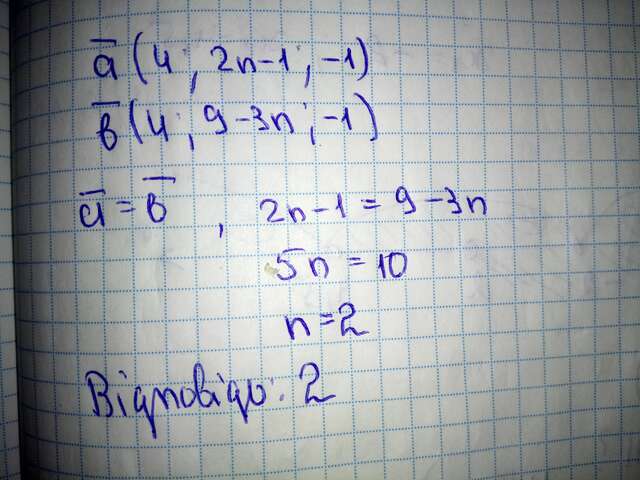 a̅ (4 ; 2n-1 ; -1)
b̅ (4 ; 9-3n ; -1)
a̅ = b̅ , 2n-1 = 9-3n
5n = 10
n=2
Відповідь: 2